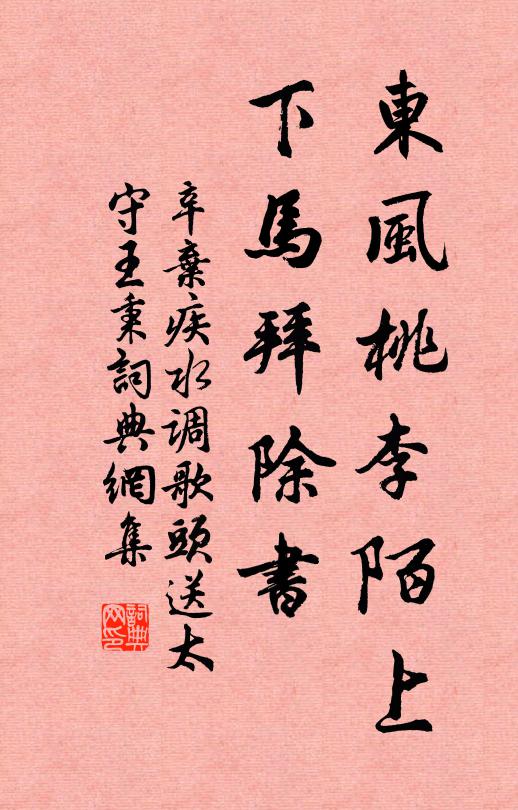 東風桃李陌上
下馬拜除書
辛棄疾水调歌頭送太
守王秉詞典網集
詞典
网印